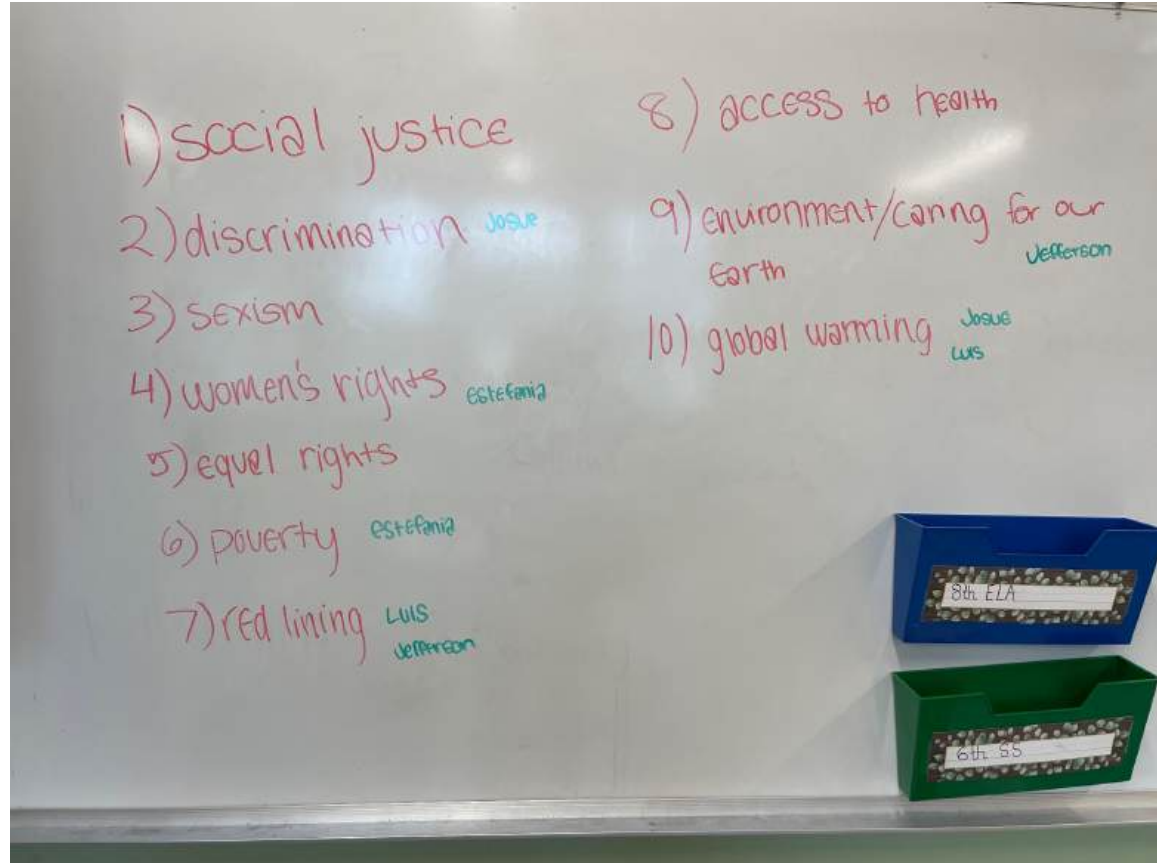 1) social justice
2) discrimination Josue
3) sexism
4) women's rights estefania
5) equal rights
6) poverty estefania
7) red lining Luis
Jefferson
8) access to health
9) environment/caring for our
earth
Jefferson
10) global warming Josue
Luis
8th ELA
6th SS